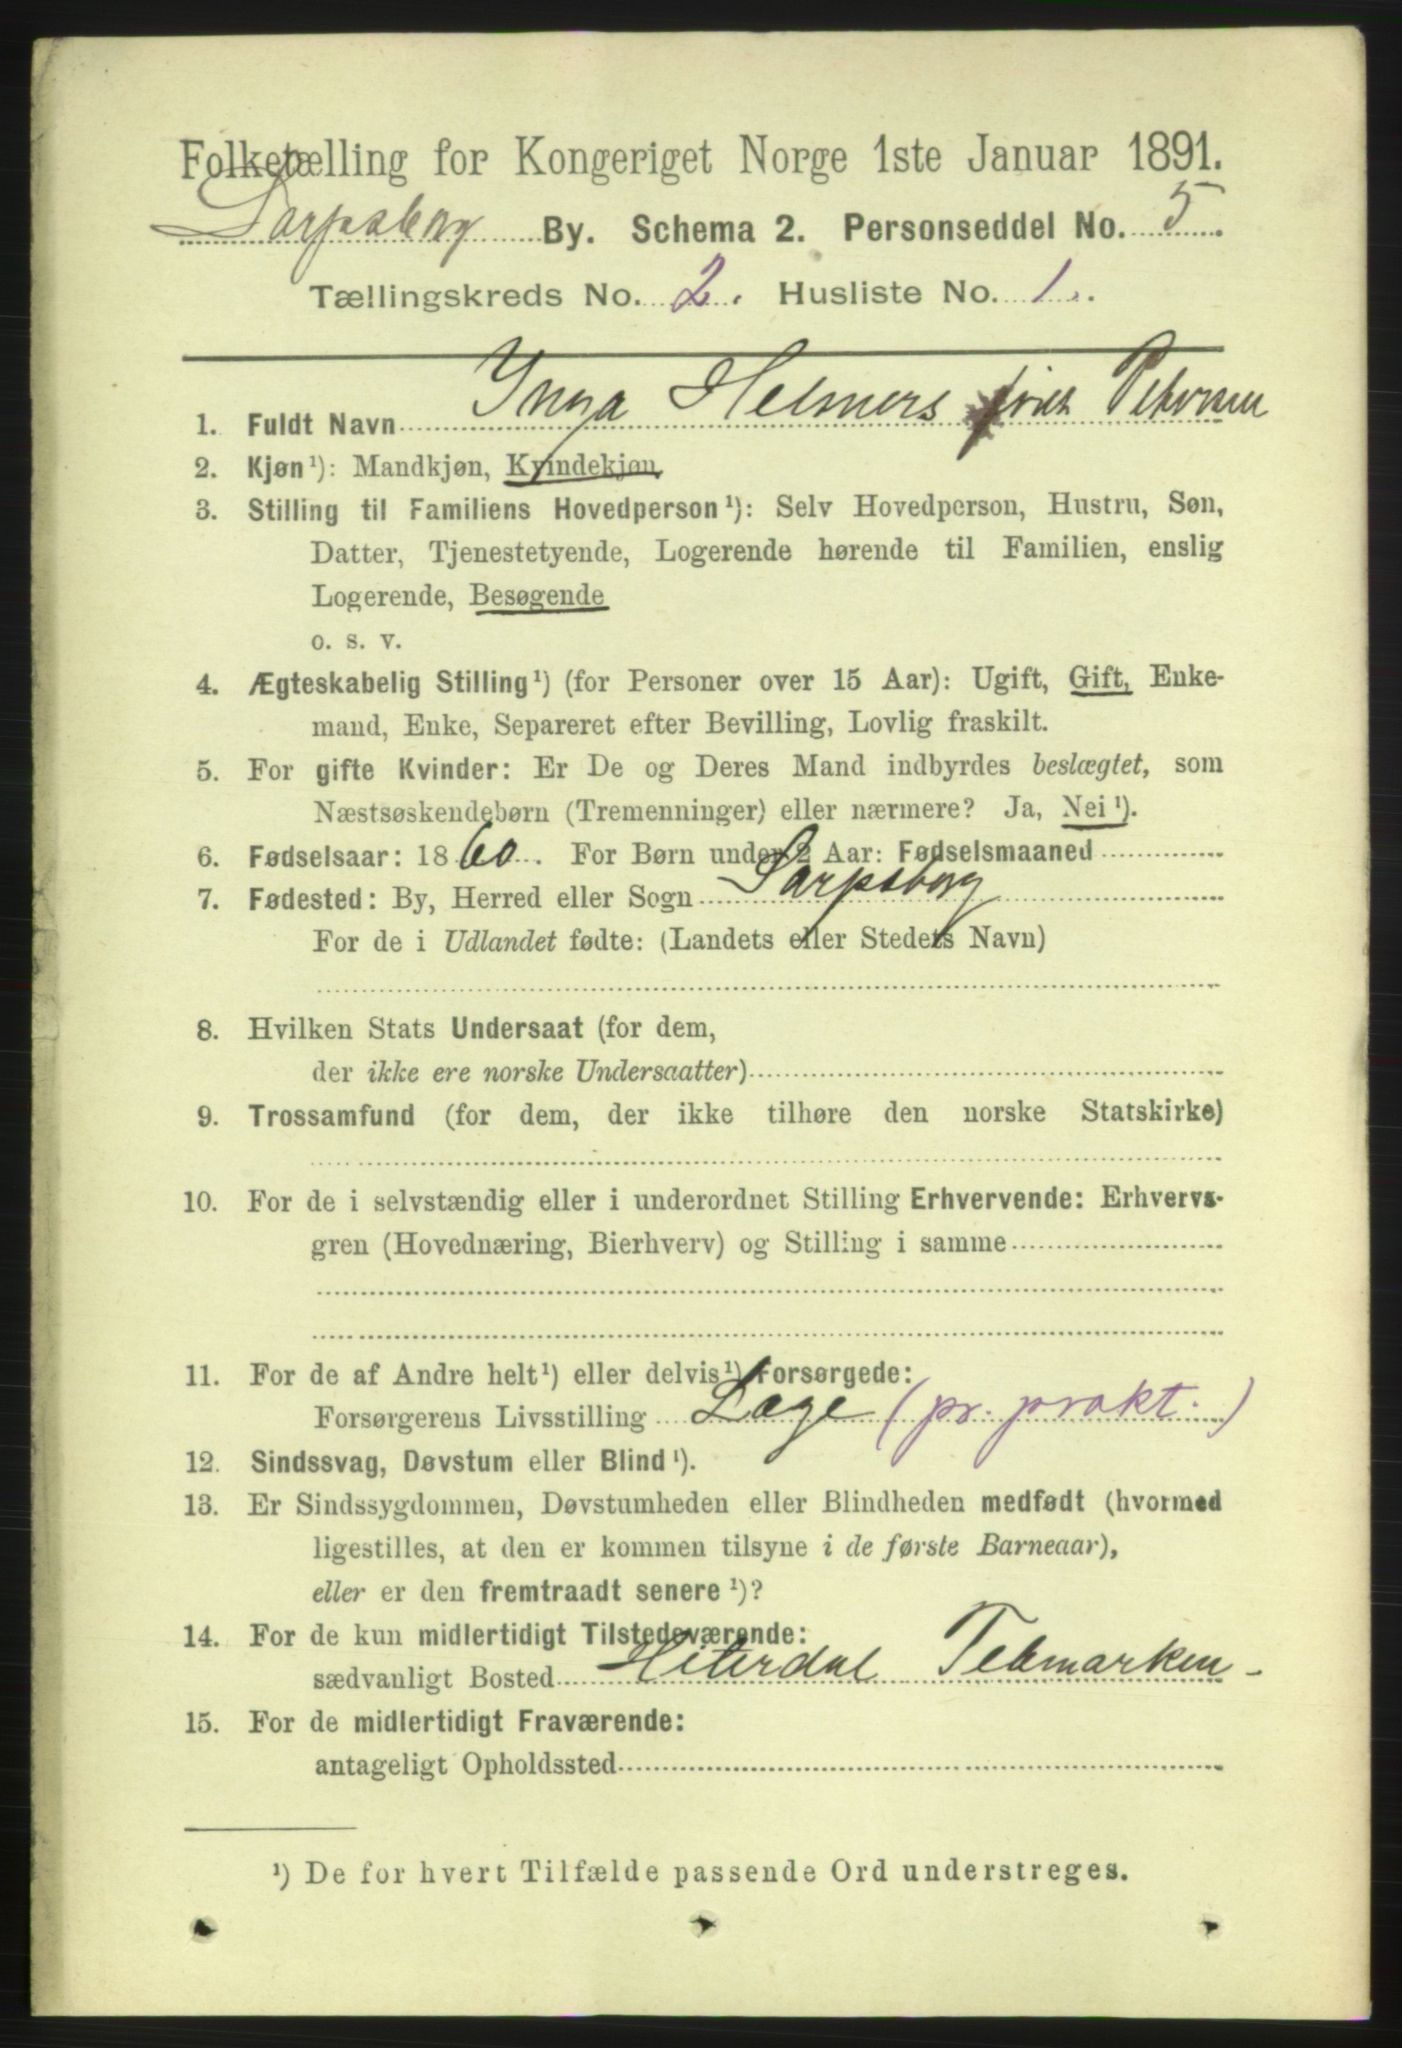 Folketælling for Kongeriget Norge 1ste Januar 1891.
Sarpsborg By. Schema 2. Personseddel No. 5.
Tællingskreds No. 2. Husliste No. 1.
1. Fuldt Navn Inga Helmers født Petersen
2. Kjøn ¹): Mandkjøn, Kvindekjøn
3. Stilling til Familiens Hovedperson ¹): Selv Hovedperson, Hustru, Søn,
Datter, Tjenestetyende, Logerende hørende til Familien, enslig
Logerende, Besøgende
o. s. v.
4. Ægteskabelig Stilling ¹) (for Personer over 15 Aar): Ugift, Gift, Enke-
mand, Enke, Separeret efter Bevilling, Lovlig fraskilt.
5. For gifte Kvinder: Er De og Deres Mand indbyrdes beslægtet, som
Næstsøskendebørn (Tremenninger) eller nærmere? Ja, Nei ¹).
6. Fødselsaar: 1860. For Børn under 2 Aar: Fødselsmaaned
7. Fødested: By, Herred eller Sogn Sarpsborg
For de i Udlandet fødte: (Landets eller Stedets Navn)
8. Hvilken Stats Undersaat (for dem,
der ikke ere norske Undersaatter)
9. Trossamfund (for dem, der ikke tilhøre den norske Statskirke)
10. For de i selvstændig eller i underordnet Stilling Erhvervende: Erhvervs-
gren (Hovednæring, Bierhverv) og Stilling i samme
11. For de af Andre helt ¹) eller delvis ¹) Forsørgede:
Forsørgerens Livsstilling Læge (pr. prakt.)
12. Sindssvag, Døvstum eller Blind ¹).
13. Er Sindssygdommen, Døvstumheden eller Blindheden medfødt (hvormed
ligestilles, at den er kommen tilsyne i de første Barneaar),
eller er den fremtraadt senere ¹)?
14. For de kun midlertidigt Tilstedeværende:
sædvanligt Bosted Hiterdal Telemarken
15. For de midlertidigt Fraværende:
antageligt Opholdssted
¹) De for hvert Tilfælde passende Ord understreges.